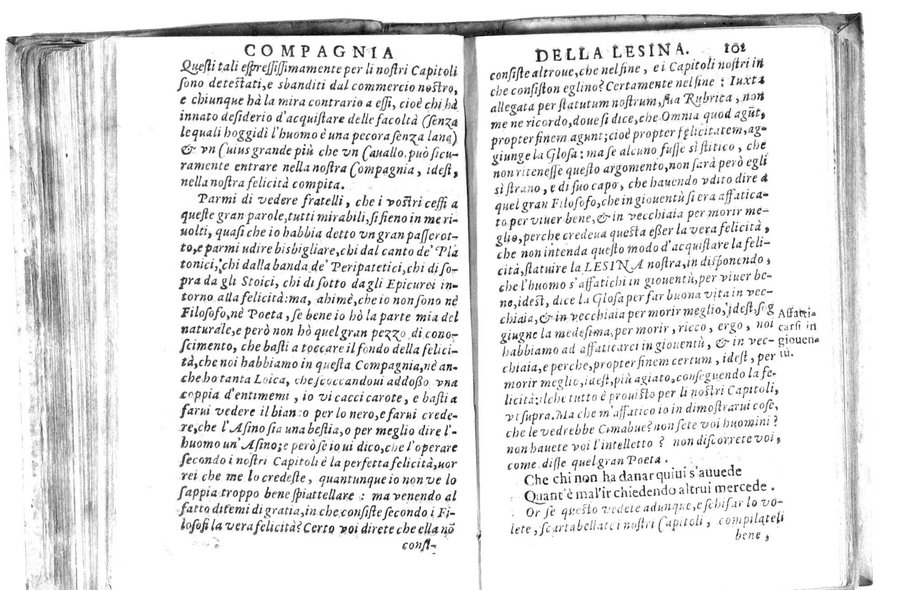 COMPAGNIA
Questi tali espressissimamente per li nostri Capitoli
sono detestati, e sbanditi dal commercio nostro,
e chiunque hà la mira contrario a essi, cioè chi hà
innato desiderio d'acquistare delle facoltà (senza
le quali hoggidì l'huomo è una pecora senza lana)
& vn Cuius grande più che vn Cauallo può sicu-
ramente entrare nella nostra Compagnia, idest,
nella nostra felicità compita.
Parmi di vedere fratelli, che i vostri cessi a
queste gran parole, tutti mirabili, si sieno in me ri-
uolti, quasi che io habbia detto vn gran passerot-
to, e parmi udire bisbigliare, chi dal canto de' Pla
tonici, chi dalla banda de' Peripatetici, chi di so-
pra da gli Stoici, chi di sotto dagli Epicurei in
torno alla felicità: ma, ahimè, che io non sono nè
Filosofo, nè Poeta, se bene io hò la parte mia del
naturale, e però non hò quel gran pezzo di cono-
scimento, che basti a toccare il fondo della felici-
tà, che noi habbiamo in questa Compagnia, nè an-
che ho tanta Loica, che scoccandoui addosso vna
coppia d'entimemi, io vi cacci carote, e basti a
farui vedere il bianco per lo nero, e farui crede-
re, che l'Asino sia una bestia, o per meglio dire l'-
huomo un'Asino; e però se io ui dico, che l'operare
secondo i nostri Capitoli è la perfetta felicità, uor
rei che me lo credeste, quantunque io non ve lo
sappia troppo bene spiattellare: ma venendo al
fatto ditemi di gratia, in che consiste secondo i Fi-
losofi la vera felicità? Certo voi direte che ella nō
consi-
DELLA LESINA. 101
consiste altroue, che nel fine, e i Capitoli nostri in
che consiston eglino? Certamente nel fine: Iuxta
allegata per statutum nostrum, sua Rubrica, non
me ne ricordo, doue si dice, che Omnia quod agūt,
propter finem agunt: cioè propter felicitatem, ag-
giunge la Glosa: ma se alcuno fusse sì stitico, che
non ritenesse questo argomento, non sarà però egli
sì strano, e di suo capo, che hauendo vdito dire a
quel gran Filosofo, che in giouentù si era affatica-
to per viuer bene, & in vecchiaia per morir me-
glio, perche credeua questa esser la vera felicità,
che non intenda questo modo d'acquistare la feli-
cità, statuire la LESINA nostra, in disponendo,
che l'huomo s'affatichi in giouentù, per viuer be-
no, idest, dice la Glosa per far buona vita in vec-
chiaia, & in vecchiaia per morir meglio, idest, sog
giugne la medesima, per morir, ricco, ergo, noi
habbiamo ad affaticarci in giouentù, & in vec-
chiaia, e perche, propter finem certum, idest, per
morir meglio, idest, più agiato, conseguendo la fe-
licità: ilche tutto è prouisto per li nostri Capitoli,
vt supra. Ma che m'affatico io in dimostrarui cose,
che le vedrebbe Cimabue? non sete voi huomini?
non hauete voi l'intelletto? non discorrete voi,
come disse quel gran Poeta.
Che chi non ha danar quiui s'auuede
Quant'è mal'ir chiedendo altrui mercede.
Or se questo vedete adunque, e schifar lo vo-
lete, scartabellate i nostri Capitoli, compilateli
bene,
Affati-
carsi in
giouen-
tù.